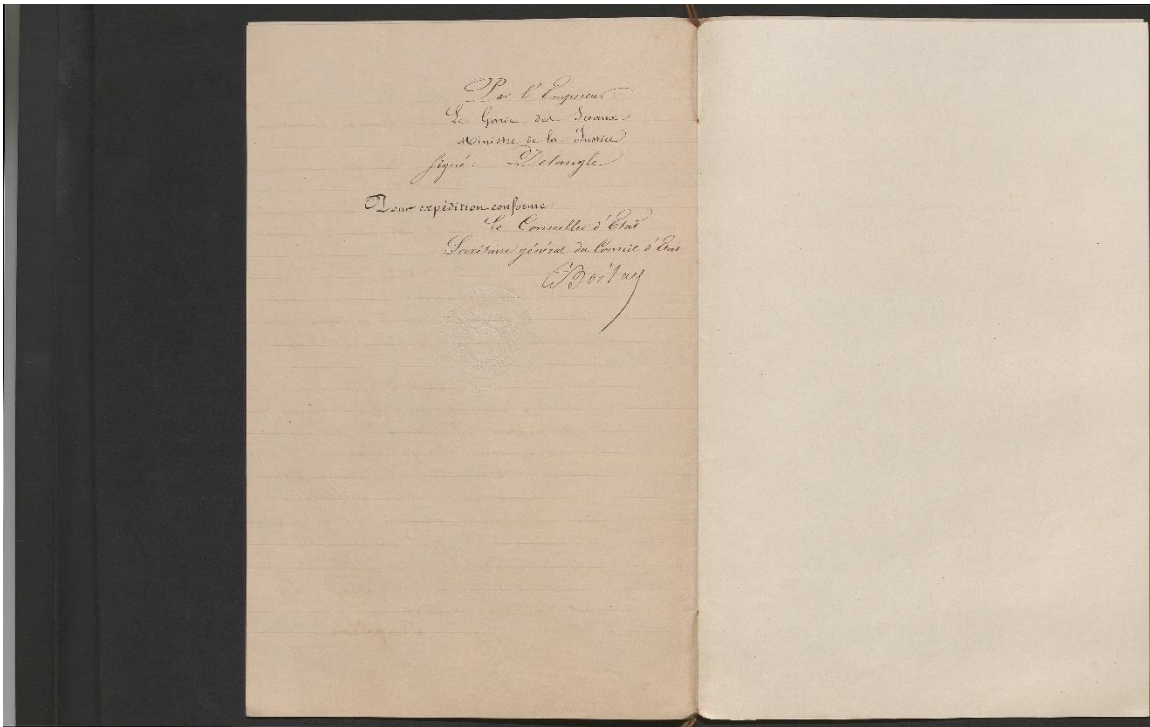 Par l'Empereur:
Le Garde des Sceaux
Ministre de la Justice
Signé: Delangle
Pour expédition conforme:
Le Conseiller d'Etat
Secrétaire général du Conseil d'Etat